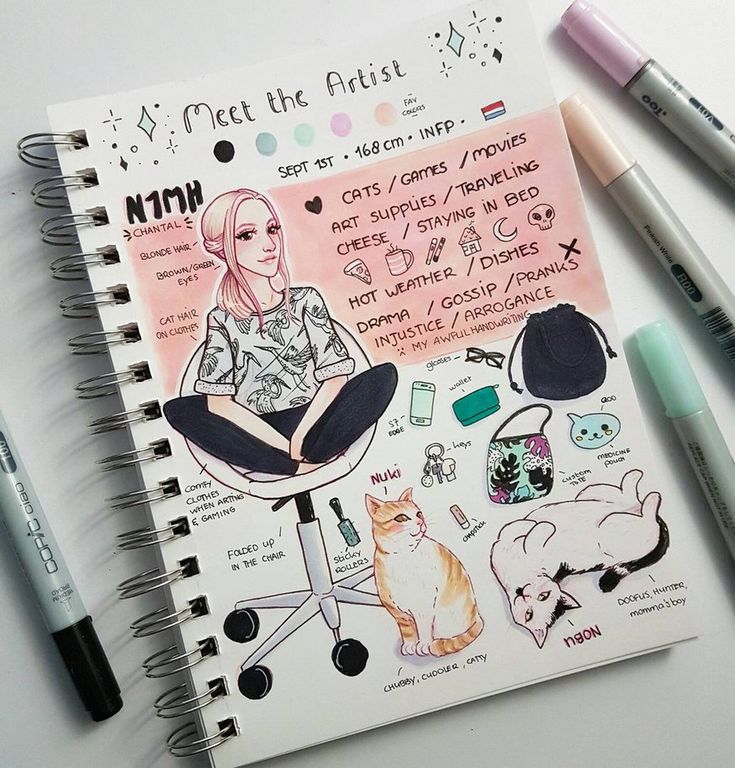 Meet the Artist
FAV
COLORS
SEPT 1ST • 168cm • INFP •
N1MH
CHANTAL
BLONDE HAIR
BROWN/GREEN
EYES
CAT HAIR
ON CLOTHES
CATS / GAMES / MOVIES
ART SUPPLIES / TRAVELING
CHEESE / STAYING IN BED
HOT WEATHER / DISHES
DRAMA / GOSSIP / PRANKS
INJUSTICE / ARROGANCE
MY AWFUL HANDWRITING
glasses
wallet
S7
EDGE
keys
QOO
MEDICINE
POUCH
custom
TOTE
chapstick
COMFY
CLOTHES
WHEN ARTING
& GAMING
FOLDED UP
IN THE CHAIR
sticky
ROLLERS
NUKI
CHUBBY, CUDDLER, CATTY
NOBU
DOOFUS, HUNTER,
momma's boy
.Too
Pinkish White
R00
COPIC ciao
MEDIUM
BROAD